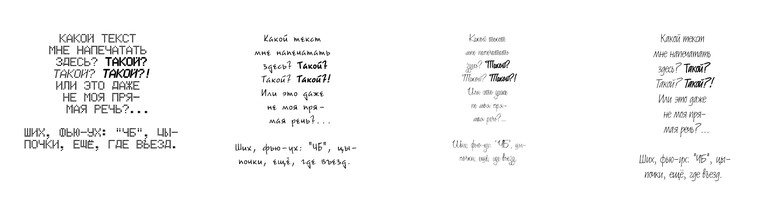 КАКОЙ ТЕКСТ
МНЕ НАПЕЧАТАТЬ
ЗДЕСЬ? ТАКОЙ?
ТАКОЙ? ТАКОЙ?!
ИЛИ ЭТО ДАЖЕ
НЕ МОЯ ПРЯ-
МАЯ РЕЧЬ?...
ШИХ, ФЬЮ-УХ: "ЧБ", ЦЫ-
ПОЧКИ, ЕЩЁ, ГДЕ ВЪЕЗД.
Какой текст
мне напечатать
здесь? Такой?
Такой? Такой?!
Или это даже
не моя пря-
мая речь?...
Ших, фью-ух: "ЧБ", цы-
почки, ещё, где въезд.
Какой текст
мне напечатать
здесь? Такой?
Такой? Такой?!
Или это даже
не моя пря-
мая речь?...
Ших, фью-ух: "ЧБ", цы-
почки, ещё, где въезд.
Какой текст
мне напечатать
здесь? Такой?
Такой? Такой?!
Или это даже
не моя пря-
мая речь?...
Ших, фью-ух: "ЧБ", цы-
почки, ещё, где въезд.